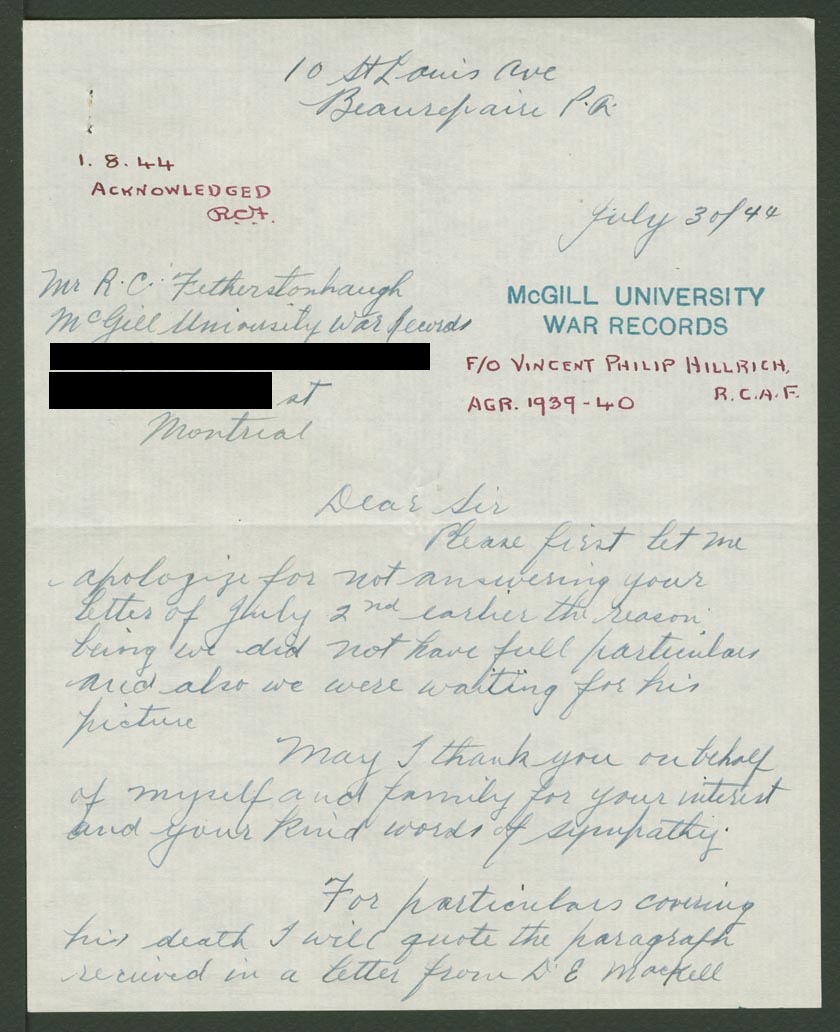 10 St Louis Ave
Beaurepaire P.Q.
1. 8. 44
ACKNOWLEDGED
R.C.F.
July 30/44
Mr R. C. Fetherstonhaugh
McGill University War Records
st
Montreal
McGILL UNIVERSITY
WAR RECORDS
F/O VINCENT PHILIP HILLRICH,
R.C.A.F.
AGR. 1939-40
Dear Sir
Please first let me
apologize for not answering your
letter of July 2nd earlier the reason
being we did not have full particulars
and also we were waiting for his
picture
May I thank you on behalf
of myself and family for your interest
and your kind words of sympathy.
For particulars covering
his death I will quote the paragraph
recieved in a letter from D. E Mackell